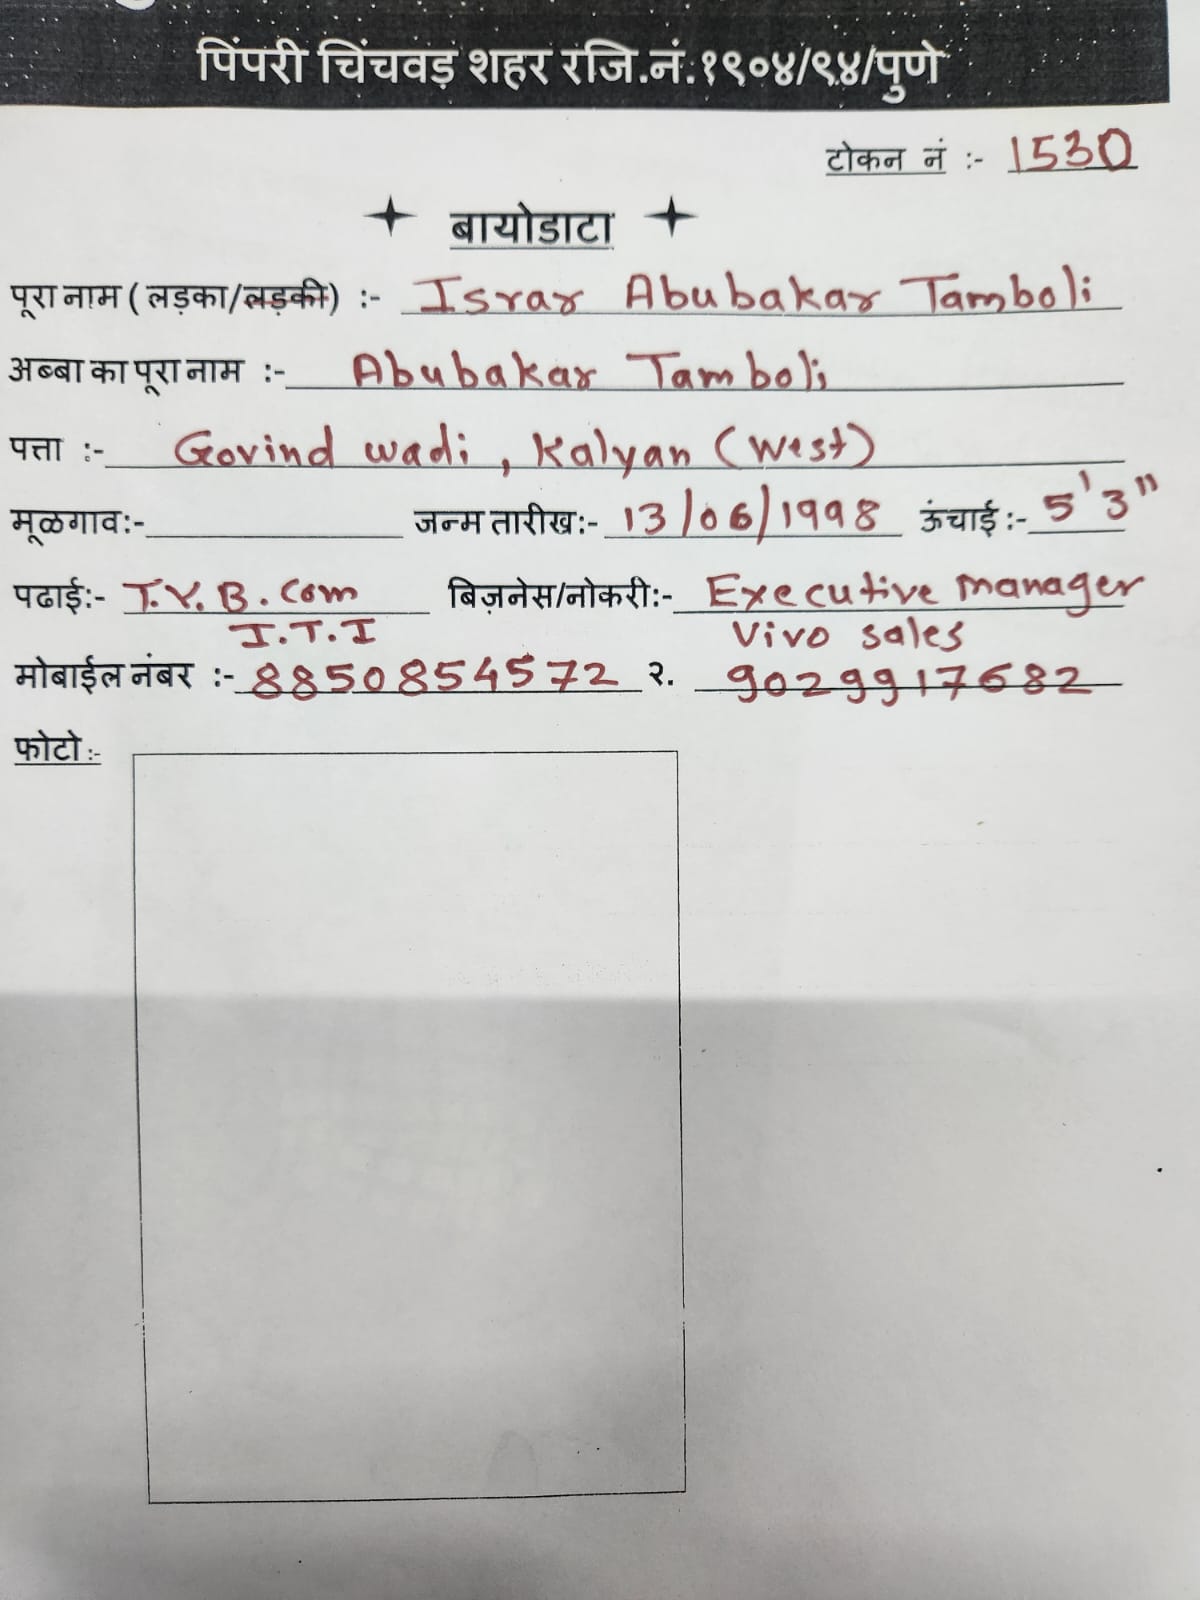 पिंपरी चिंचवड़ शहर रजि.नं.१९०४/९४/पुणे
टोकन नं :- 1530
बायोडाटा
पूरा नाम ( लड़का/लड़की) :- Israr Abubakar Tamboli
अब्बा का पूरा नाम :- Abubakar Tamboli
पत्ता :- Govind wadi, Kalyan (West)
मूळगाव:- जन्म तारीख:- 13/06/1998 ऊंचाई :- 5'3"
पढाई:- T.Y. B. Com बिज़नेस/नोकरी:- Executive manager
I.T.I Vivo sales
मोबाईल नंबर :- 8850854572 २. 9029917682
फोटो :-